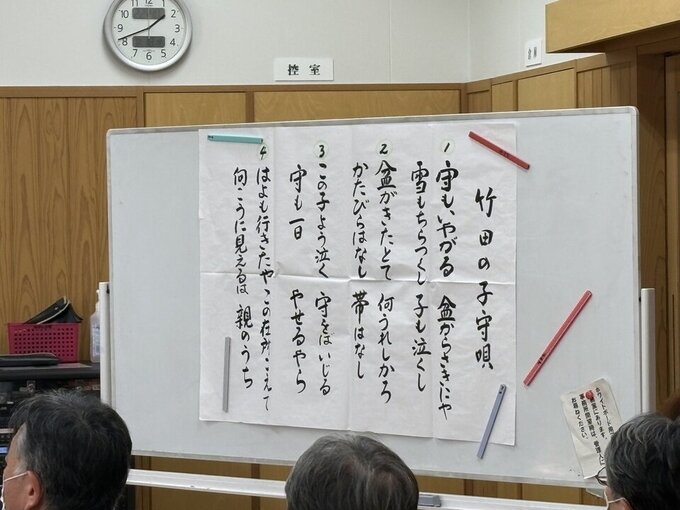 控室
倉庫
竹田の子守唄
1 守も、いやがる 盆からさきにゃ
雪もちらつくし 子も泣くし
2 盆がきたとて 何うれしかろ
かたびらはなし 帯はなし
3 この子よう泣く 守をばいじる
守も一日 やせるやら
4 はよも行きたや この在所こえて
向こうに見えるは 親のうち
ホワイトボード用